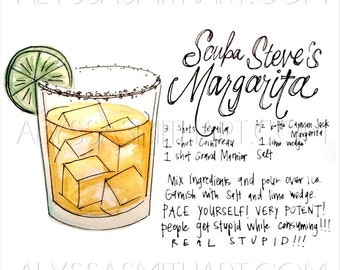 ALYSSASMITHART.COM
Scuba Steve's
Margarita
3 shots tequila
1 shot Cointreau
1 shot Grand Marnier
½ bottle Cayman Jack
Margarita
1 lime wedge
Salt
Mix ingredients and pour over ice.
Garnish with salt and lime wedge.
PACE YOURSELF! VERY POTENT!
people get stupid while consuming!!!
REAL STUPID!!!
ALYSSASMITHART.COM